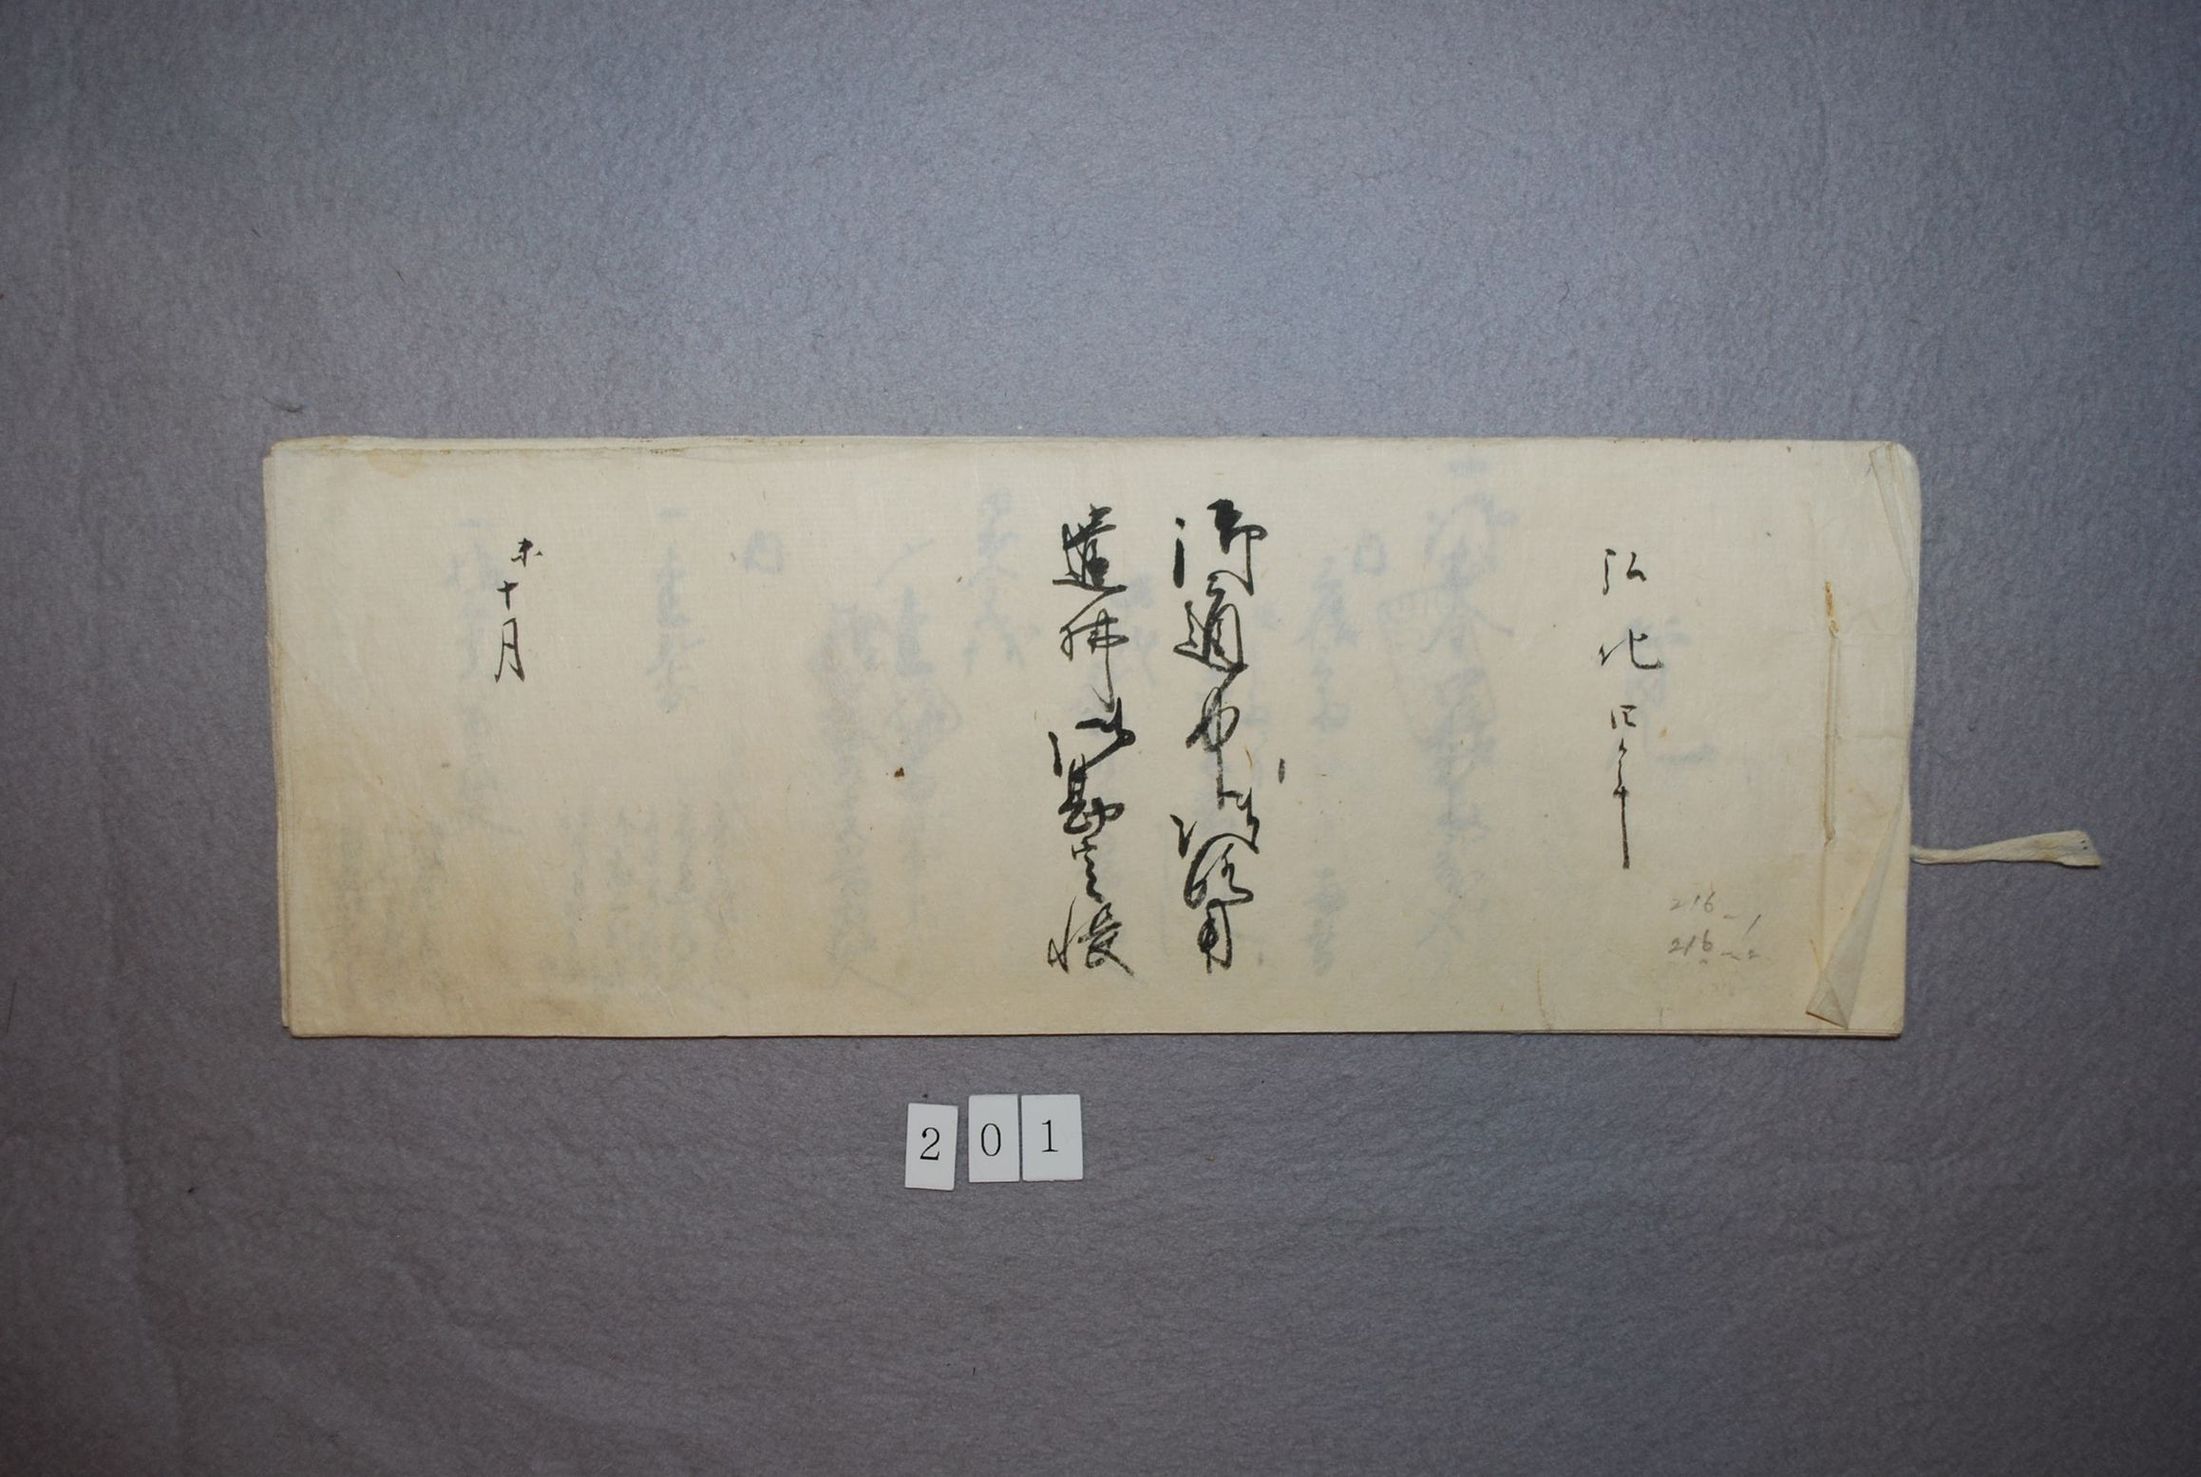 弘化四年
御通中御路用
遣拂御勘定帳
未
十月
216-1
216-2
201